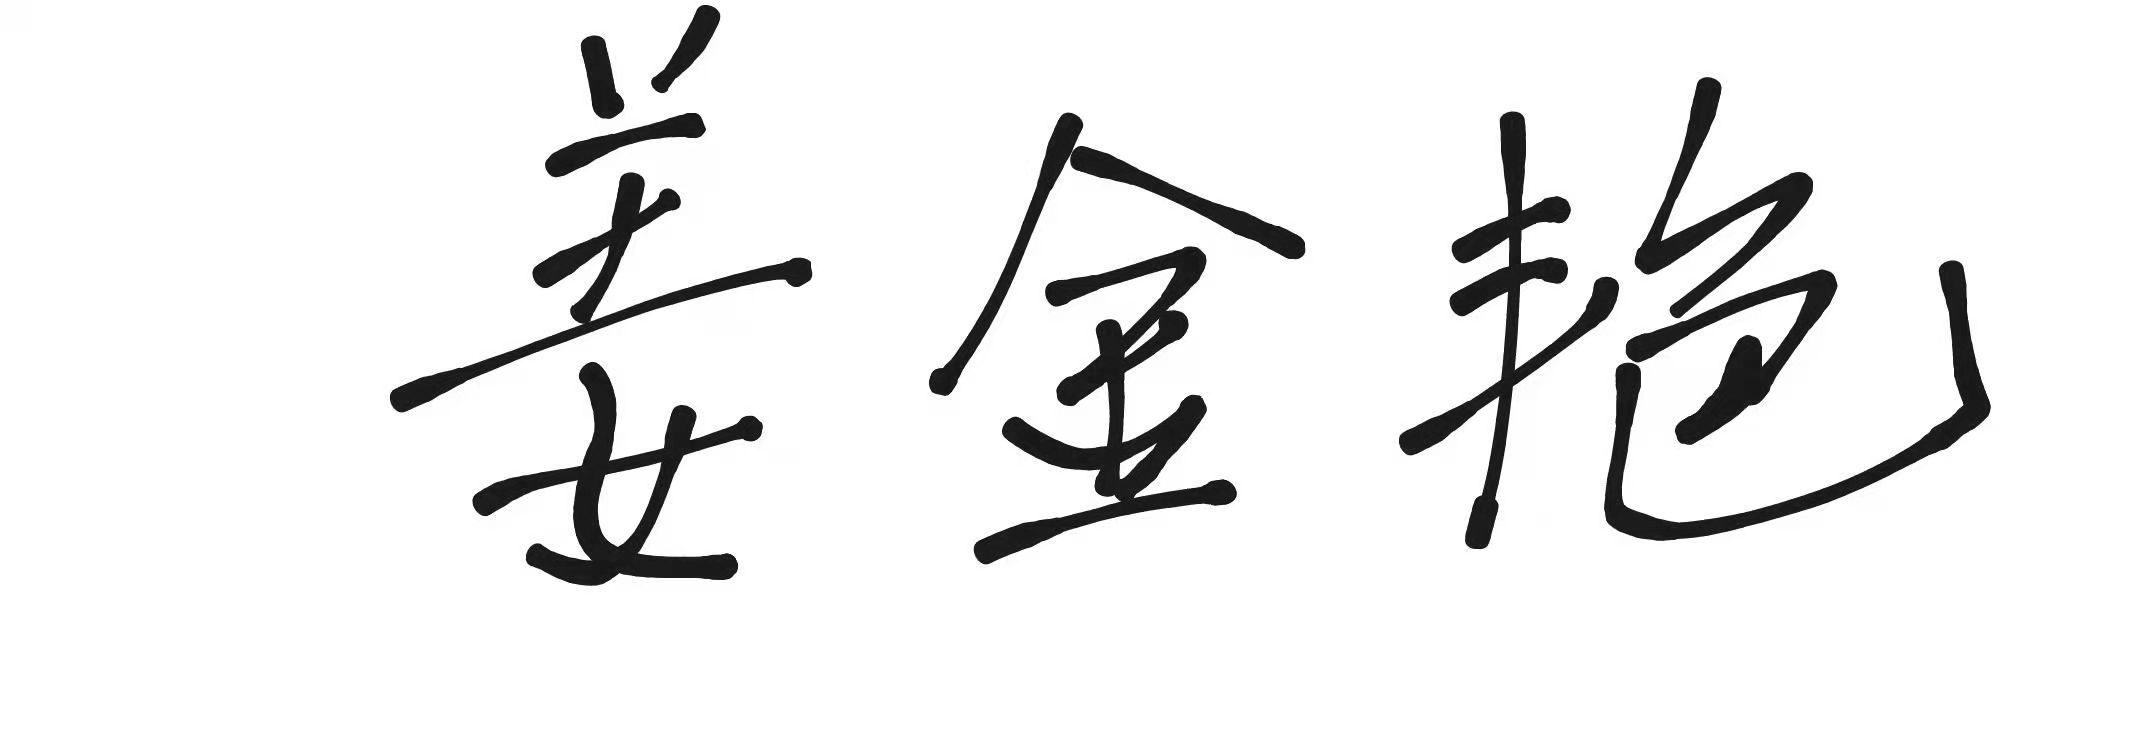 姜金艳